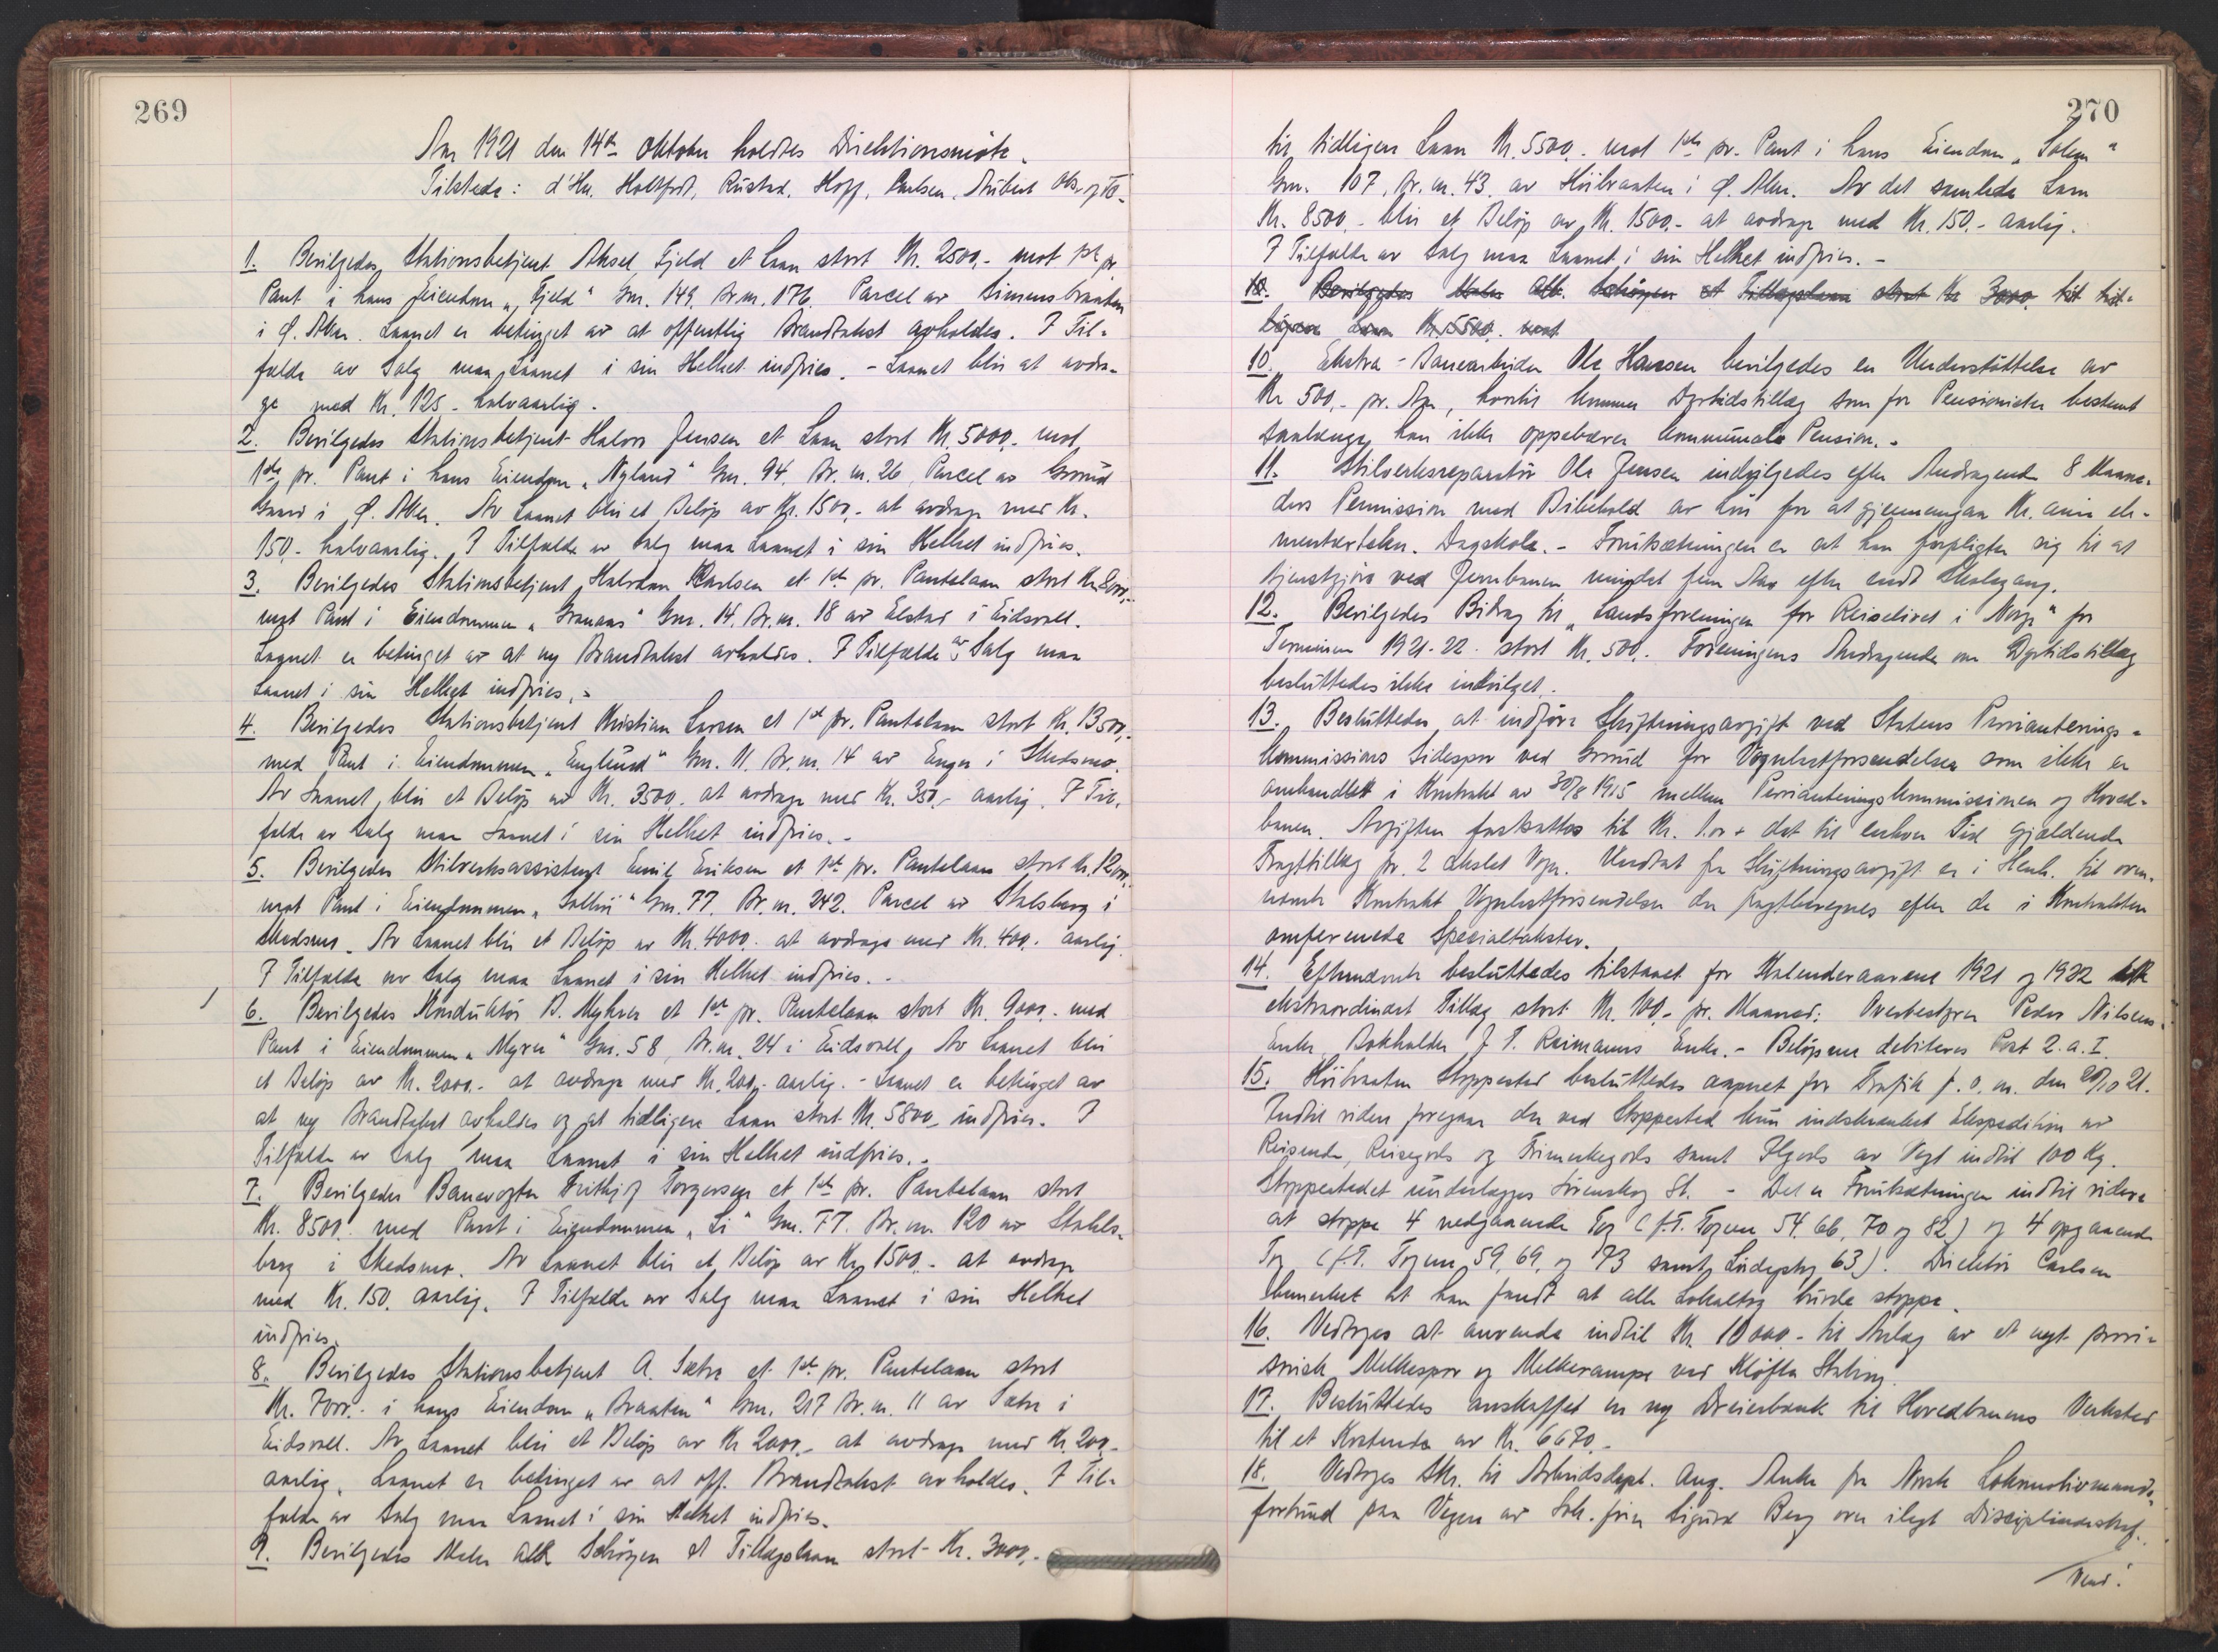 269
Aar 1921 den 14de Oktober holdtes Direktionsmöte.
Tilstede: d'Hrr. Holtfodt, Rustad, Hoff, Carlsen, Aubert
1. Bevilgedes Stationsbetjent Aksel Fjeld et Laan stort Kr. 2500,- mot 1ste pr.
Pant i hans Eiendom „Fjeld" Gnr. 149. Br.nr. 176. Parcel av Simensbraaten
i Ø. Aker. Laanet er betinget av at offentlig Brandtakst avholdes. I Til-
fælde av Salg maa Laanet i sin Helhet indfries. - Laanet blir at avdra-
ge med Kr. 125.- halvaarlig.
2. Bevilgedes Stationsbetjent Halvor Jensen et Laan stort Kr. 5000.- mot
1ste pr. Pant i hans Eiendom „Nyland" Gnr. 94. Br. nr. 26, Parcel av Grorud
Gaard i Ø. Aker. Av Laanet blir et Beløp av Kr. 1500,- at avdrage med Kr.
150.- halvaarlig. I Tilfælde av Salg maa Laanet i sin Helhet indfries.
3. Bevilgedes Stationsbetjent Halvdan Karlsen et 1ste pr. Pantelaan stort Kr. 8000,-
mot Pant i Eiendommen „Granaas" Gnr. 14. Br.nr. 18 av Elstad i Eidsvoll.
Laanet er betinget av at ny Brandtakst avholdes. I Tilfælde av Salg maa
Laanet i sin Helhet indfries. -
4. Bevilgedes Stationsbetjent Kristian Larsen et 1ste pr. Pantelaan stort Kr. 13500,-
med Pant i Eiendommen „Englund" Gnr. 11. Br.nr. 14 av Enger i Skedsmo.
Av Laanet blir et Beløp av Kr. 3500. at avdrage med Kr. 350,- aarlig. I Til-
fælde av Salg maa Laanet i sin Helhet indfries. -
5. Bevilgedes Stilverksassistent Emil Eriksen et 1ste pr. Pantelaan stort Kr. 12000,-
mot Pant i Eiendommen „Solbü" Gnr. 77. Br.nr. 242. Parcel av Stalsberg i
Skedsmo. Av Laanet blir et Beløp av Kr. 4000. at avdrage med Kr. 400. aarlig.
I Tilfælde av Salg maa Laanet i sin Helhet indfries. -
6. Bevilgedes Konduktør B. Myhrer et 1ste pr. Pantelaan stort Kr. 9000.- med
Pant i Eiendommen „Myrer" Gnr. 58, Br.nr. 24 i Eidsvoll, Av Laanet blir
et Beløp av Kr. 2000.- at avdrage med Kr. 200,- aarlig. - Laanet er betinget av
at ny Brandtakst avholdes og at tidligere Laan stort Kr. 5800,- indfries. I
Tilfælde av Salg maa Laanet i sin Helhet indfries. -
7. Bevilgedes Banevogter Frithjof Torgersen et 1ste pr. Pantelaan stort
Kr. 8500. med Pant i Eiendommen „Li" Gnr. 77. Br.nr. 120 av Stahls-
berg i Skedsmo. Av Laanet blir et Beløp av Kr. 1500.- at avdrage
med Kr. 150. aarlig. I Tilfælde av Salg maa Laanet i sin Helhet
indfries.
8. Bevilgedes Stationsbetjent A. Sætre et 1ste pr. Pantelaan stort
Kr. 7000.- i hans Eiendom „Braaten" Gnr. 217 Br.nr. 11 av Sætre i
Eidsvoll. Av Laanet blir et Beløp av Kr 2000.- at avdrage med Kr. 200.-
aarlig. Laanet er betinget av at off. Brandtakst avholdes. I Til-
fælde av Salg maa Laanet i sin Helhet indfries.
9. Bevilgedes Maler Alb. Schøyen et Tillægslaan stort Kr. 3000,-
270
til tidligere Laan Kr. 5500.- mot 1ste pr. Pant i hans Eiendom „Solem"
Gnr. 107, Br.nr. 43 av Höibraaten i Ø. Aker. Av det samlede Laan
Kr. 8500,- blir et Beløp av Kr. 1500.- at avdrage med Kr. 150.- aarlig.
I Tilfælde av Salg maa Laanet i sin Helhet indfries. -
10. Bevilgedes Maler Alb. Schöyen et Tillægslaan stort Kr 3000. til tid-
ligere Laan Kr. 5500. mot
10. Ekstra-Banearbeider Ole Hansen bevilgedes en Understöttelse av
Kr 500,- pr. Aar, hvortil kommer Dyrtidstillæg som for Pensionister bestemt
saalænge han ikke oppebærer kommunale Pension. -
11. Stilverksreparatør Ole Jensen indvilgedes efter Andragende 8 Maane-
ders Permission med Bibehold av Lön for at gjennemgaa Kr. ania ele-
mentærtekn. Dagskole. - Forutsætningen er at han forpligter sig til at
tjenstgjøre ved Jernbanen mindst fem Aar efter endt Skolegang.
12. Bevilgedes Bidrag til „Landsforeningen for Reiselivet i Norge" for
Terminen 1921-22. stort Kr. 500,- Foreningens Andragende om Dyrtidstillæg
besluttedes ikke indvilget.
13. Besluttedes at indføre Skiftningsavgift ved Statens Provianterings-
kommissions Sidespor ved Grorud for Vognlastforsendelser som ikke er
omhandlet i Kontrakt av 30/8 1915 mellem Provianteringskommissionen og Hoved-
banen. Avgiften fastsattes til Kr. 1.00 + det til enhver Tid gjældende
Fragttillæg pr. 2 akslet Vogn. Undtat fra Skiftningsavgift er i Henh. til oven-
nævnte Kontrakt Vognlastforsendelser der fragtberegnes efter de i Kontrakten
omførenede Specialtakster.
14. Eftern­ævnte besluttedes tilstaaet for Kalenderaarene 1921 og 1922
ekstraordinært Tillæg stort Kr. 100,- pr. Maaned: Overbestyrer Peder Nilsens
Enke, Bokholder J. T. Reimanns Enke. - Beløpene debiteres Post 2.a.I.
15. Höibraaten Stoppested besluttedes aapnet for Trafik f. o. m. den 20/10 21.
Indtil videre foregaar der ved Stoppested kun indskrænket Ekspedition av
Reisende, Reisegods og Frimerkegods samt Ilgods av Vegt indtil 100 Kg.
Stoppestedet underlægges Lörenskog St. - Det er Forutsætningen indtil videre
at stoppe 4 nedgaaende Tog (f.T. Togene 54, 66, 70 og 82) og 4 opgaaende
Tog (f.T. Togene 59, 69, og 73 samt Lördagstog 63). Direktör Carlsen
bemerket at han fandt at alle Lokaltog burde stoppe.
16. Vedtoges at anvende indtil Kr. 10000.- til Anlæg av et nyt provi-
sorisk Melkespor og Melkerampe ved Kløfta Station.
17. Besluttedes anskaffet en ny Dreiebænk til Hovedbanens Verksted
til et Kostende av Kr. 6670.-
18. Vedtoges Skr. til Arbeidsdept. ang. Anke fra Norsk Lokomotivmands-
forbund paa Vegne av Lok. fyrer Sigurd Berg over ilagt Disciplinærstraf.
Vend!